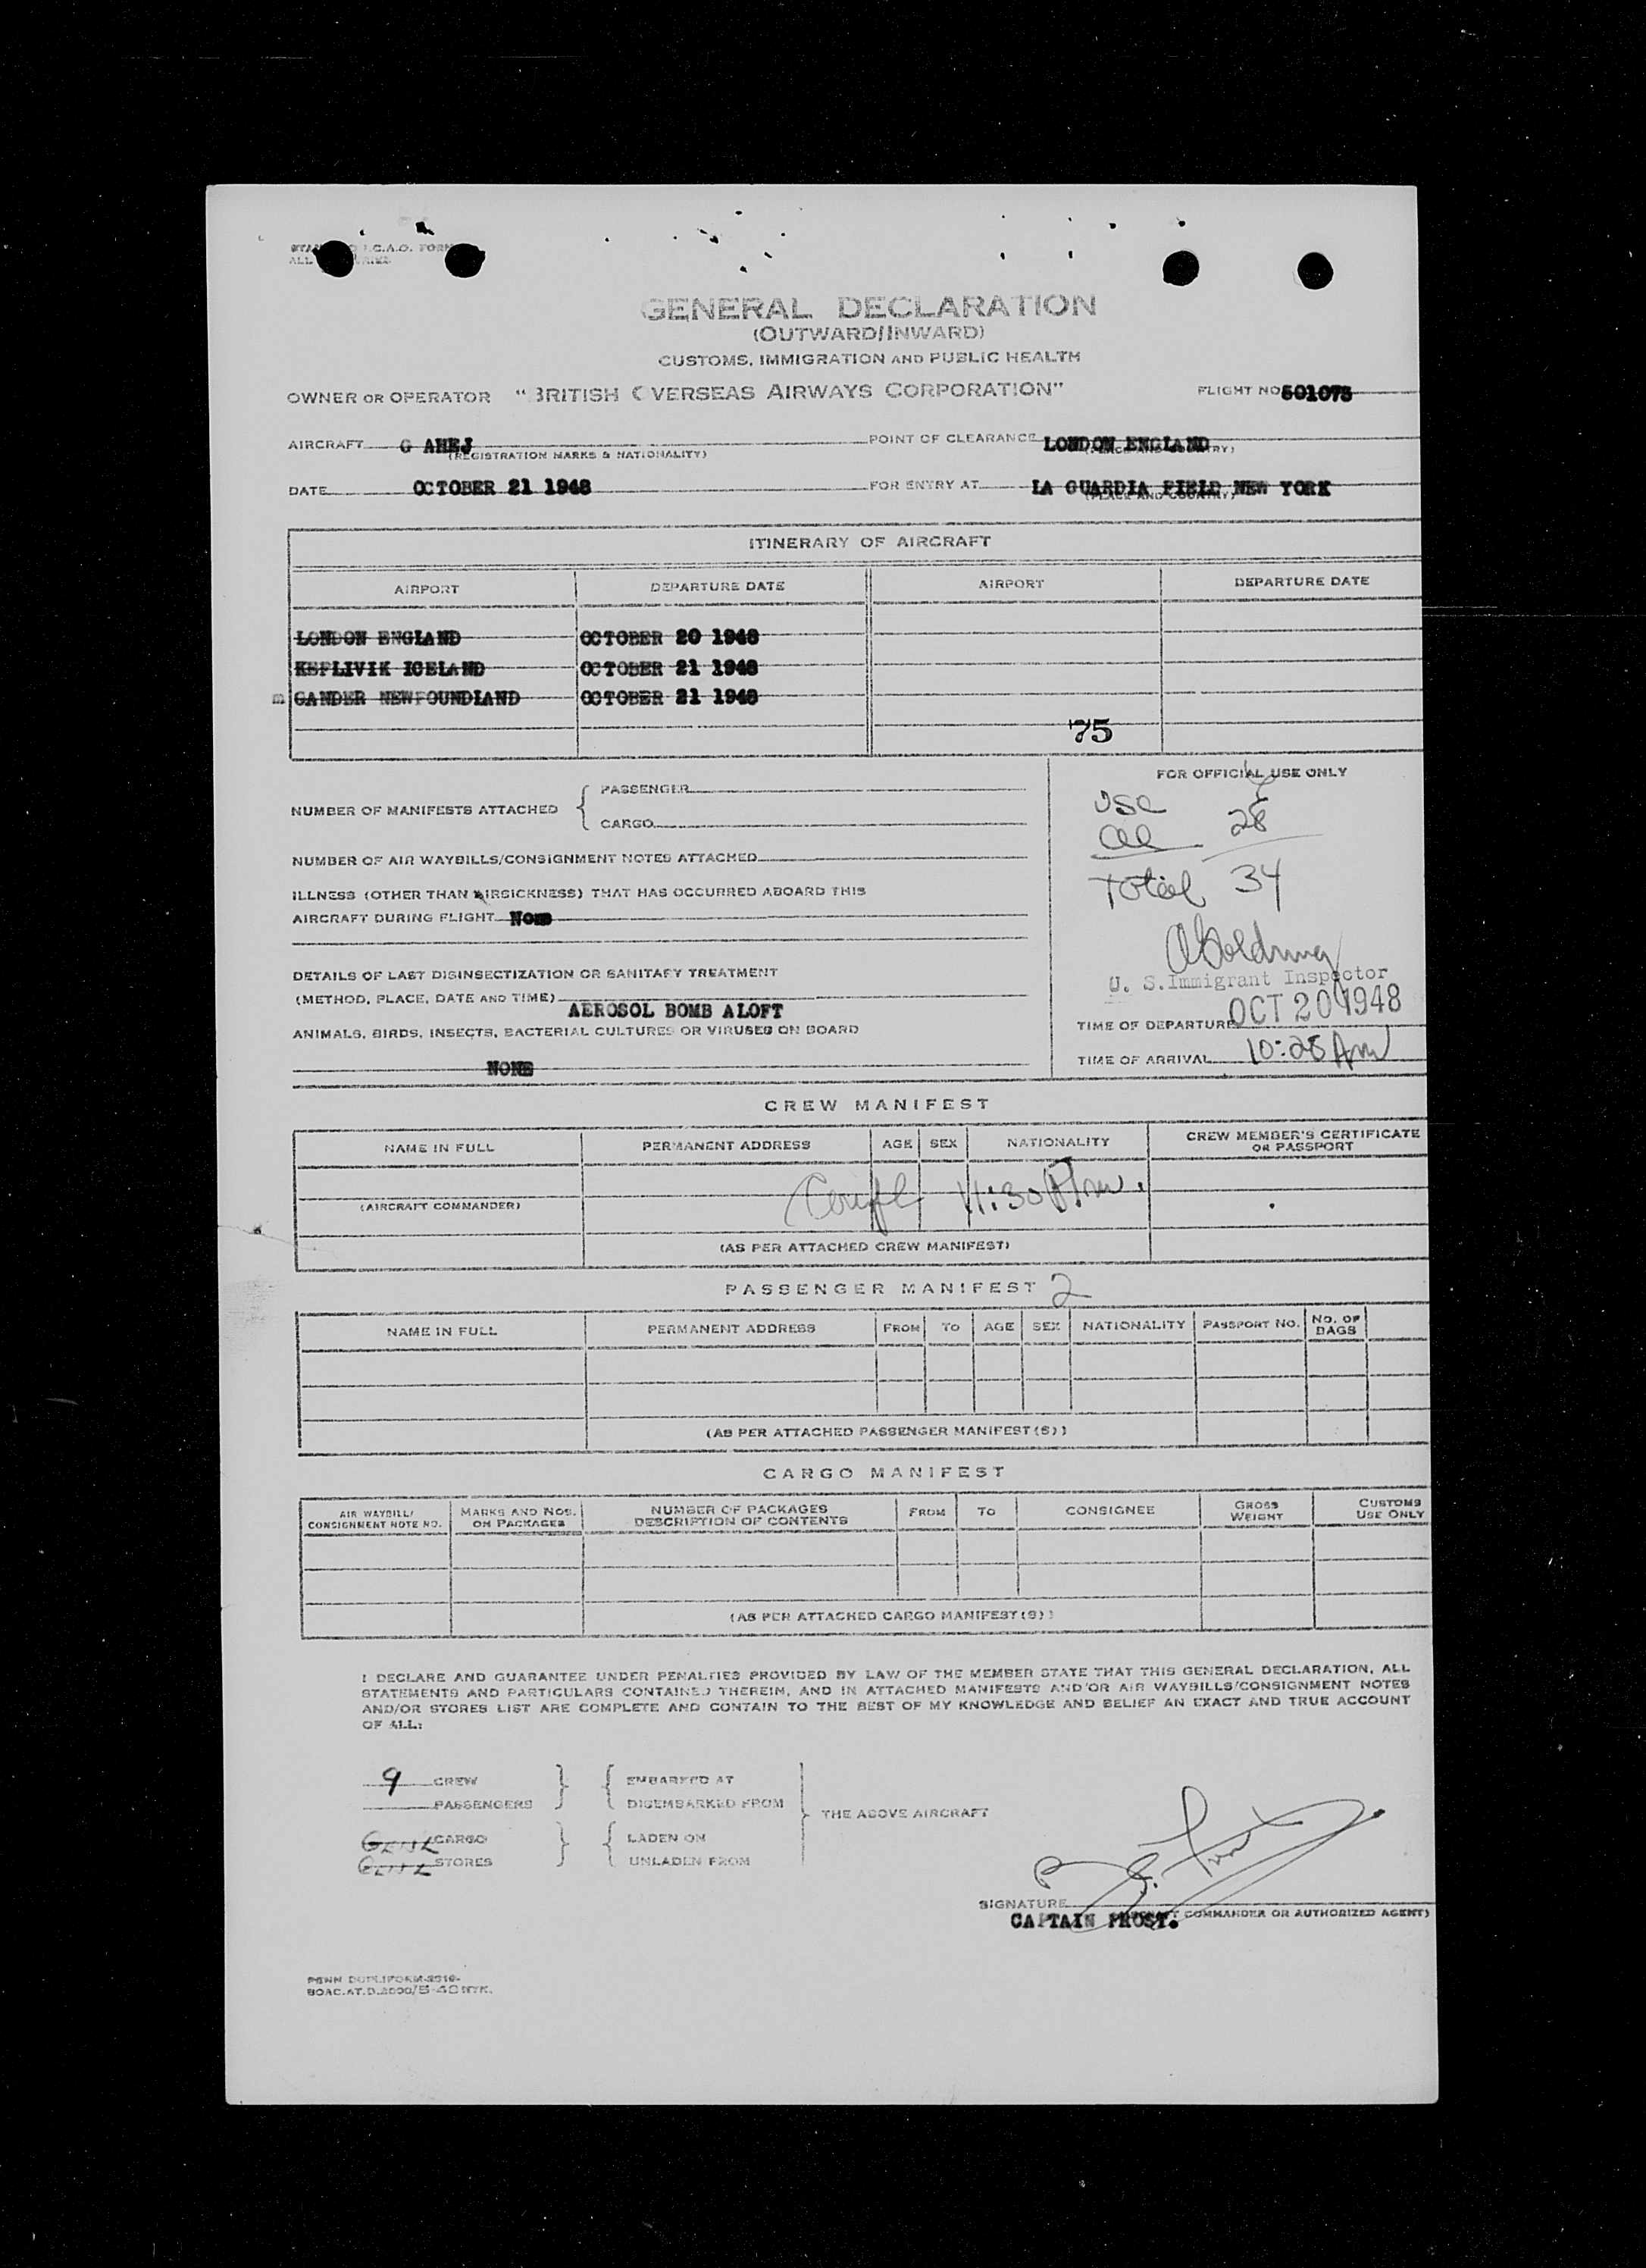 I.C.A.O. FORM
ALL
GENERAL DECLARATION
(OUTWARD/INWARD)
CUSTOMS, IMMIGRATION AND PUBLIC HEALTH
OWNER OR OPERATOR "BRITISH OVERSEAS AIRWAYS CORPORATION" FLIGHT NO 501075
AIRCRAFT G AHEJ POINT OF CLEARANCE LONDON ENGLAND
(REGISTRATION MARKS & NATIONALITY) (PLACE AND COUNTRY)
DATE OCTOBER 21 1948 FOR ENTRY AT LA GUARDIA FIELD NEW YORK
(PLACE AND COUNTRY)
ITINERARY OF AIRCRAFT
AIRPORT DEPARTURE DATE AIRPORT DEPARTURE DATE
LONDON ENGLAND OCTOBER 20 1948
KEFLIVIK ICELAND OCTOBER 21 1948
GANDER NEWFOUNDLAND OCTOBER 21 1948
75
FOR OFFICIAL USE ONLY
NUMBER OF MANIFESTS ATTACHED { PASSENGER
CARGO
USC 6
Al 28
Total 34
NUMBER OF AIR WAYBILLS/CONSIGNMENT NOTES ATTACHED
ILLNESS (OTHER THAN AIRSICKNESS) THAT HAS OCCURRED ABOARD THIS
AIRCRAFT DURING FLIGHT None
U. S. Immigrant Inspector
DETAILS OF LAST DISINSECTIZATION OR SANITARY TREATMENT
(METHOD, PLACE, DATE AND TIME)
AEROSOL BOMB ALOFT
ANIMALS, BIRDS, INSECTS, BACTERIAL CULTURES OR VIRUSES ON BOARD
NONE
TIME OF DEPARTURE OCT 20 1948
TIME OF ARRIVAL 10:28 Am
CREW MANIFEST
NAME IN FULL PERMANENT ADDRESS AGE SEX NATIONALITY CREW MEMBER'S CERTIFICATE OR PASSPORT
11:30 Am.
(AIRCRAFT COMMANDER)
(AS PER ATTACHED CREW MANIFEST)
PASSENGER MANIFEST 2
NAME IN FULL PERMANENT ADDRESS FROM TO AGE SEX NATIONALITY PASSPORT NO. NO. OF BAGS
(AS PER ATTACHED PASSENGER MANIFEST(S))
CARGO MANIFEST
AIR WAYBILL/ CONSIGNMENT NOTE NO. MARKS AND NOS. ON PACKAGES NUMBER OF PACKAGES DESCRIPTION OF CONTENTS FROM TO CONSIGNEE GROSS WEIGHT CUSTOMS USE ONLY
(AS PER ATTACHED CARGO MANIFEST(S))
I DECLARE AND GUARANTEE UNDER PENALTIES PROVIDED BY LAW OF THE MEMBER STATE THAT THIS GENERAL DECLARATION, ALL
STATEMENTS AND PARTICULARS CONTAINED THEREIN, AND IN ATTACHED MANIFESTS AND/OR AIR WAYBILLS/CONSIGNMENT NOTES
AND/OR STORES LIST ARE COMPLETE AND CONTAIN TO THE BEST OF MY KNOWLEDGE AND BELIEF AN EXACT AND TRUE ACCOUNT
OF ALL:
9 CREW } { EMBARKED AT
PASSENGERS DISEMBARKED FROM
THE ABOVE AIRCRAFT
CARGO } { LADEN ON
STORES UNLADEN FROM
SIGNATURE
CAPTAIN FROST. COMMANDER OR AUTHORIZED AGENT)
PENN DUPLIFORM-2516-
BOAC.AT.D.2000/5-48 NYK.